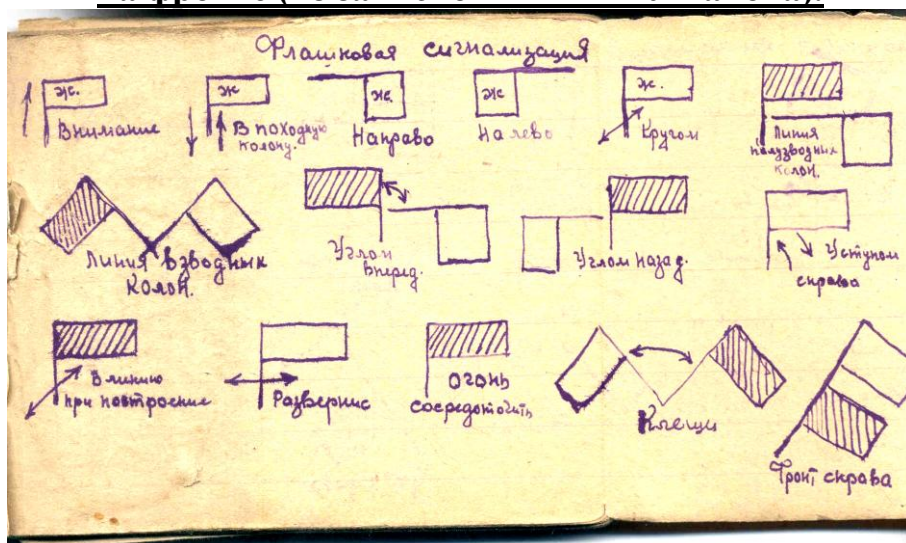 Флашковая сигнализация
ж.
Внимание
ж
В походную
колону.
ж.
Направо
ж
Налево
ж.
Кругом
Линия
полузводных
колон.
Линия взводных
колон.
Углом
вперед.
Углом назад.
Уступом
справа
В линию
при повтроение
Развернис
огонь
сосредоточить
Клещи
Фронт справа